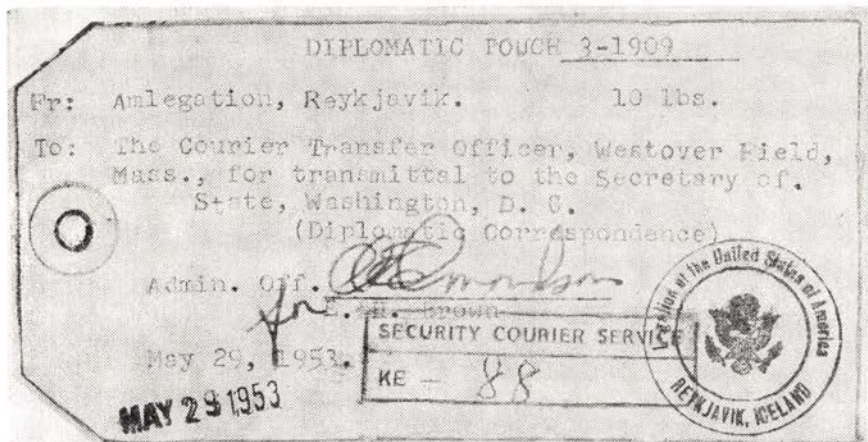 DIPLOMATIC POUCH 3-1909
Fr: Amlegation, Reykjavik. 10 lbs.
To: The Courier Transfer Officer, Westover Field,
Mass., for transmittal to the Secretary of.
State, Washington, D. C.
(Diplomatic Correspondence)
Admin. Off.
for
Brown
SECURITY COURIER SERVICE
May 29, 1953.
KE — 88
MAY 29 1953
Legation of the United States of America
REYKJAVIK, ICELAND